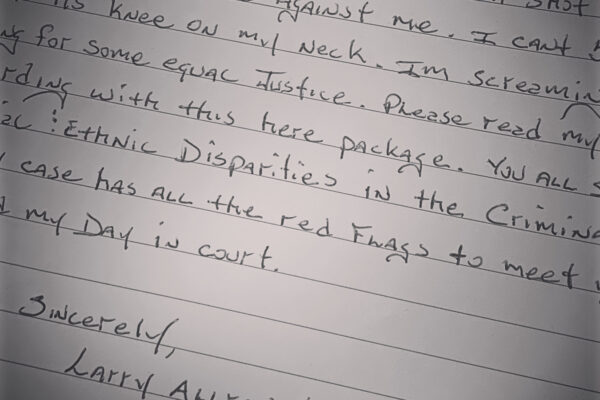 AGAINST me. I CANT
Knee on my Neck. Im screamin
for some equac Justice. Please read my
rding with this here package. You ALL
: Ethnic Disparities in the Crimina
case has all the red Fhags to meet
my Day in court.
Sincerely,
Larry